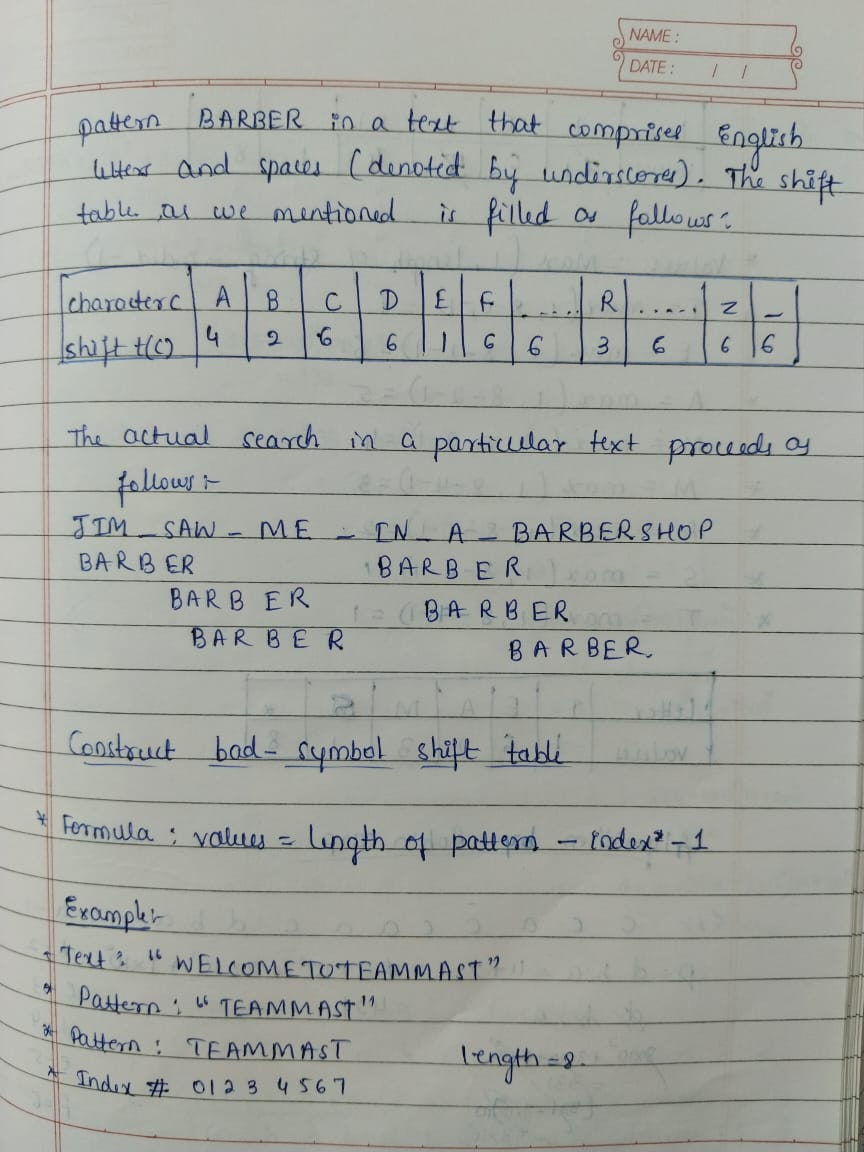 NAME :
DATE : / /
pattern BARBER in a text that comprises English
letters and spaces (denoted by underscores). The shift
table as we mentioned is filled as follows :
character c A B C D E F ..... R ..... Z _
shift t(c) 4 2 6 6 1 6 6 3 6 6 6
The actual search in a particular text proceeds as
follows :-
JIM _ SAW _ ME _ IN _ A _ BARBERSHOP
BARBER BARBER
BARBER BARBER
BARBER BARBER.
Construct bad- symbol shift table
* Formula : values = length of pattern - index* - 1
Example:-
* Text : "WELCOMETOTEAMMAST"
* Pattern : "TEAMMAST"
* Pattern : TEAMMAST length = 8.
* Index # 01234567